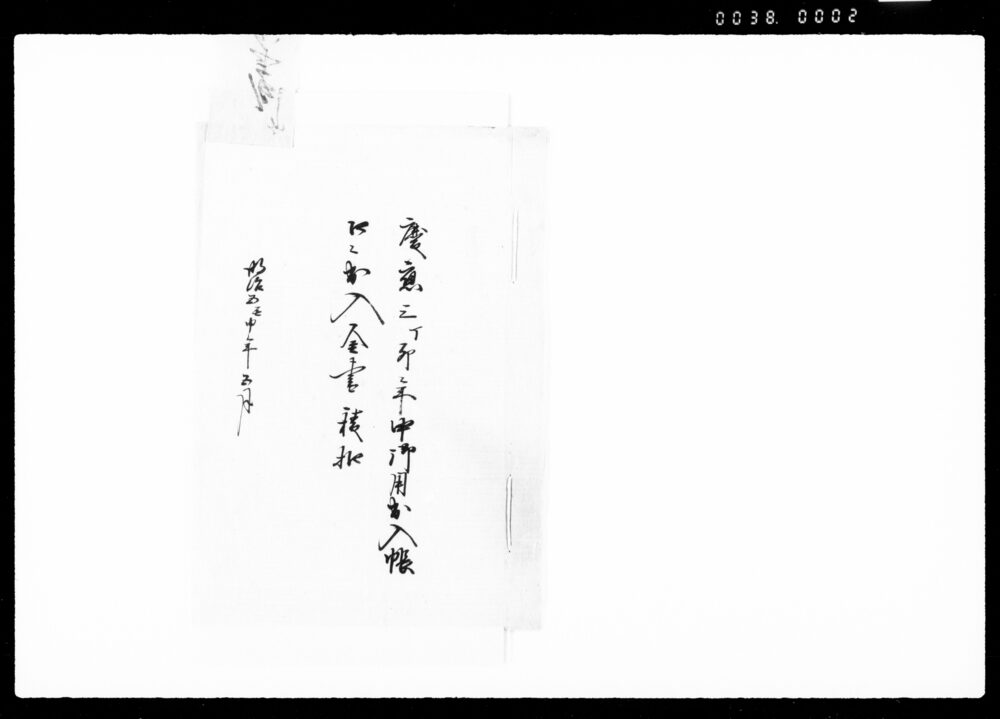 0038. 0002
慶應三丁卯年中御用出入帳
出入金書積
明治五壬申年五月